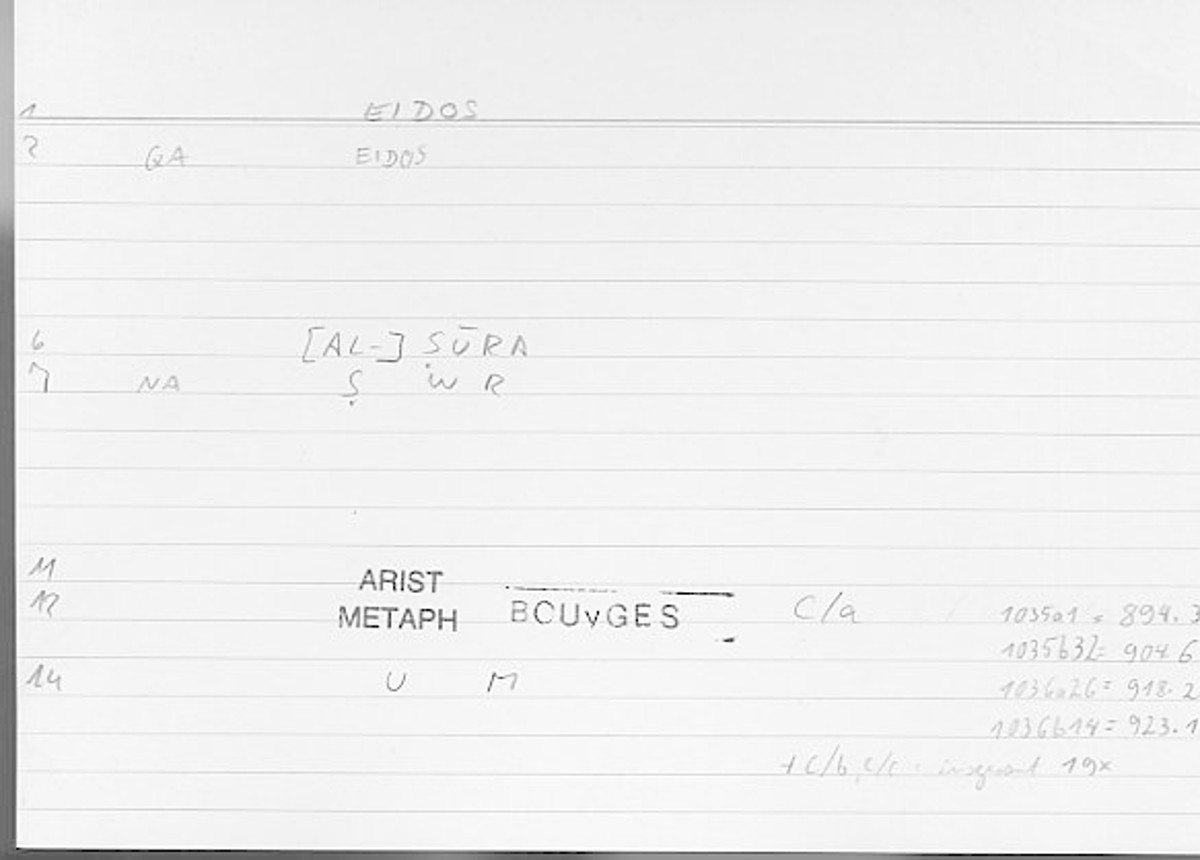 1 EIDOS
2 QA EIDOS
6 [AL-] ṢŪRA
7 NA Ṣ W R
11 ARIST
12 METAPH BOUYGES C/a 1035a1 = 894.3
1035b32 = 904.6
14 U M 1036a26 = 918.2
1036b14 = 923.1
+ C/b, c/c = insgesamt 19x